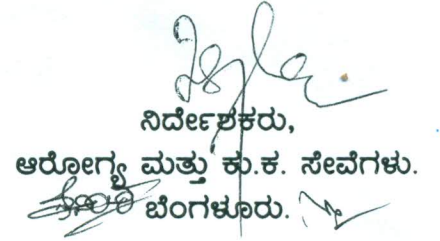 ನಿರ್ದೇಶಕರು,
ಆರೋಗ್ಯ ಮತ್ತು ಕು.ಕ. ಸೇವೆಗಳು.
ಬೆಂಗಳೂರು.